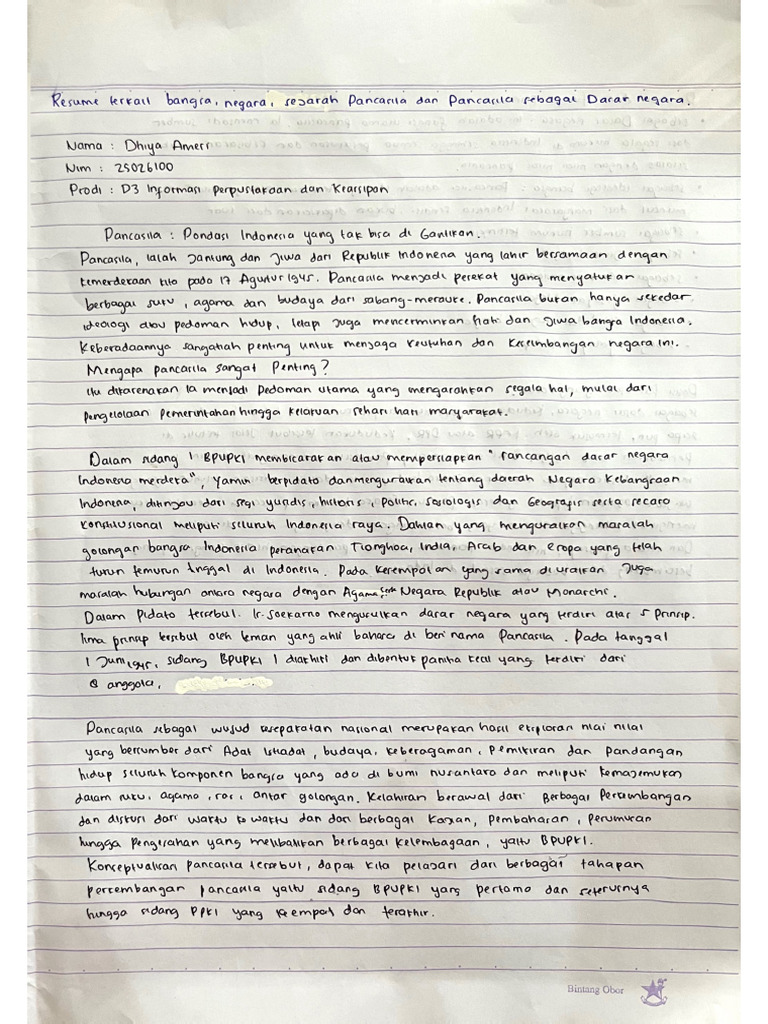 Resume terkait bangsa, negara, sejarah Pancasila dan Pancasila sebagai Dasar negara.
Nama : Dhiya Amerr
Nim : 25026100
Prodi : D3 Informasi perpustakaan dan Kearsipan
Pancasila : Pondasi Indonesia yang tak bisa di Gantikan.
Pancasila, ialah Jantung dan Jiwa dari Republik Indonesia yang lahir bersamaan dengan
kemerdekaan kita pada 17 Agustus 1945. Pancasila menjadi perekat yang menyatukan
berbagai suku, agama dan budaya dari sabang-merauke. Pancasila bukan hanya sekedar
ideologi atau pedoman hidup, tetapi Juga mencerminkan hati dan Jiwa bangsa Indonesia.
Keberadaannya sangatlah penting untuk menjaga keutuhan dan Keseimbangan negara ini.
Mengapa pancasila sangat Penting?
Itu dikarenakan Ia menjadi Pedoman utama yang mengarahkan segala hal, mulai dari
pengelolaan Pemerintahan hingga kelakuan sehari hari masyarakat.
Dalam sidang 1 BPUPKI membicarakan atau mempersiapkan "rancangan dasar negara
Indonesia merdeka", Yamin berpidato dan menguraikan tentang daerah Negara Kebangsaan
Indonesia, ditinjau dari segi yuridis, historis, Politik, Sosiologis dan Geografis serta secara
konstitusional meliputi seluruh Indonesia raya. Dahlan yang menguraikan masalah
golongan bangsa Indonesia peranakan Tionghoa, India, Arab dan eropa yang telah
turun temurun tinggal di Indonesia. Pada kesempatan yang sama di uraikan Juga
masalah hubungan antara negara dengan Agama serta Negara Republik atau Monarchi.
Dalam Pidato tersebut. Ir. Soekarno mengusulkan dasar negara yang terdiri atas 5 Prinsip.
lima prinsip tersebut oleh teman yang ahli bahasa di beri nama Pancasila. Pada tanggal
1 Juni 1945, sidang BPUPKI 1 diakhiri dan dibentuk panitia kecil yang terdiri dari
8 anggota,
Pancasila sebagai wujud kesepakatan nasional merupakan hasil eksplorasi nlai nilai
yang bersumber dari Adat Istiadat, budaya, keberagaman, pemikiran dan pandangan
hidup seluruh komponen bangsa yang ada di bumi nusantara dan meliputi kemajemukan
dalam suku, agama, ras, antar golongan. Kelahiran berawal dari Berbagai Perkembangan
dan diskusi dari waktu ke waktu dan dari berbagai Kajian, pembaharan, perumusan
hingga Pengesahan yang melibatkan berbagai Kelembagaan, yaitu BPUPKI.
Konseptualisasi pancasila tersebut, dapat kita pelajari dari berbagai tahapan
perkembangan pancasila yaitu sidang BPUPKI yang pertama dan seterusnya
hingga sidang PPKI yang keempat dan terakhir.
Bintang Obor